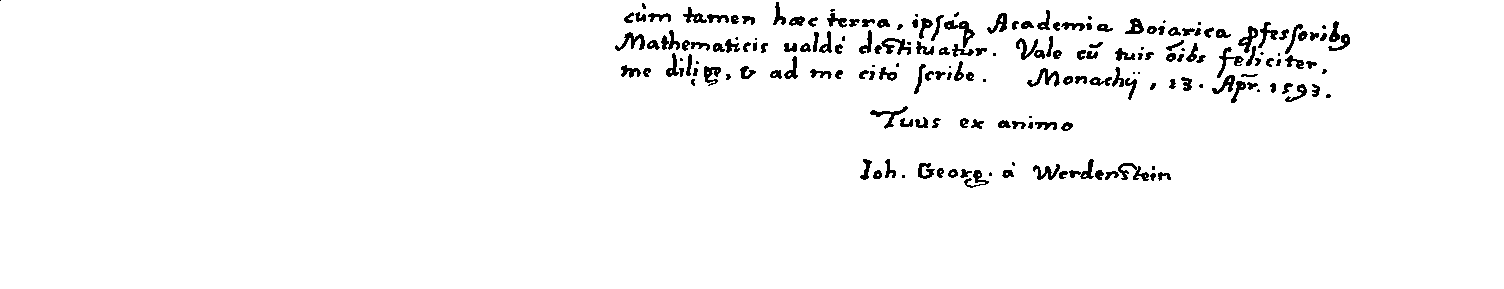 cùm tamen hæc terra, ipsáq Academia Boiarica ꝓfessoribꝯ
Mathematicis ualdè destituatur. Vale cū tuis õibs feliciter,
me dilige, & ad me citò scribe. Monachÿ, 13. Apr̄. 1593.
Tuus ex animo
Ioh. Georg. à Werdenstein